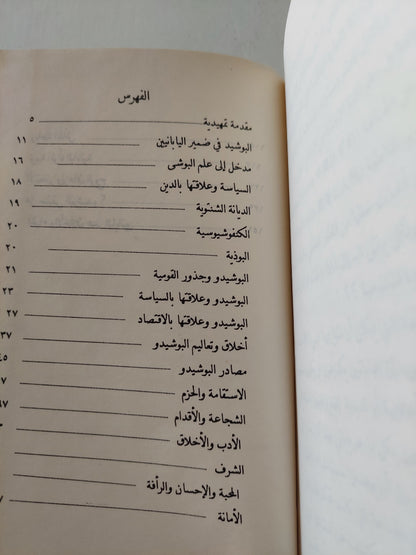 الفهرس
مقدمة تمهيدية ٥
البوشيد في ضمير اليابانيين ١١
مدخل إلى علم البوشى ١٦
السياسة وعلاقتها بالدين ١٨
الديانة الشنتوية ١٩
الكنفوشيوسية ٢٠
البوذية ٢٠
البوشيدو وجذور القومية ٢١
البوشيدو وعلاقتها بالسياسة ٢٣
البوشيدو وعلاقتها بالاقتصاد ٢٧
أخلاق وتعاليم البوشيدو ٣٧
مصادر البوشيدو ٤٥
الاستقامة والحزم ٧
الشجاعة والأقدام ٧
الأدب والأخلاق
الشرف
المحبة والإحسان والرأفة
الأمانة